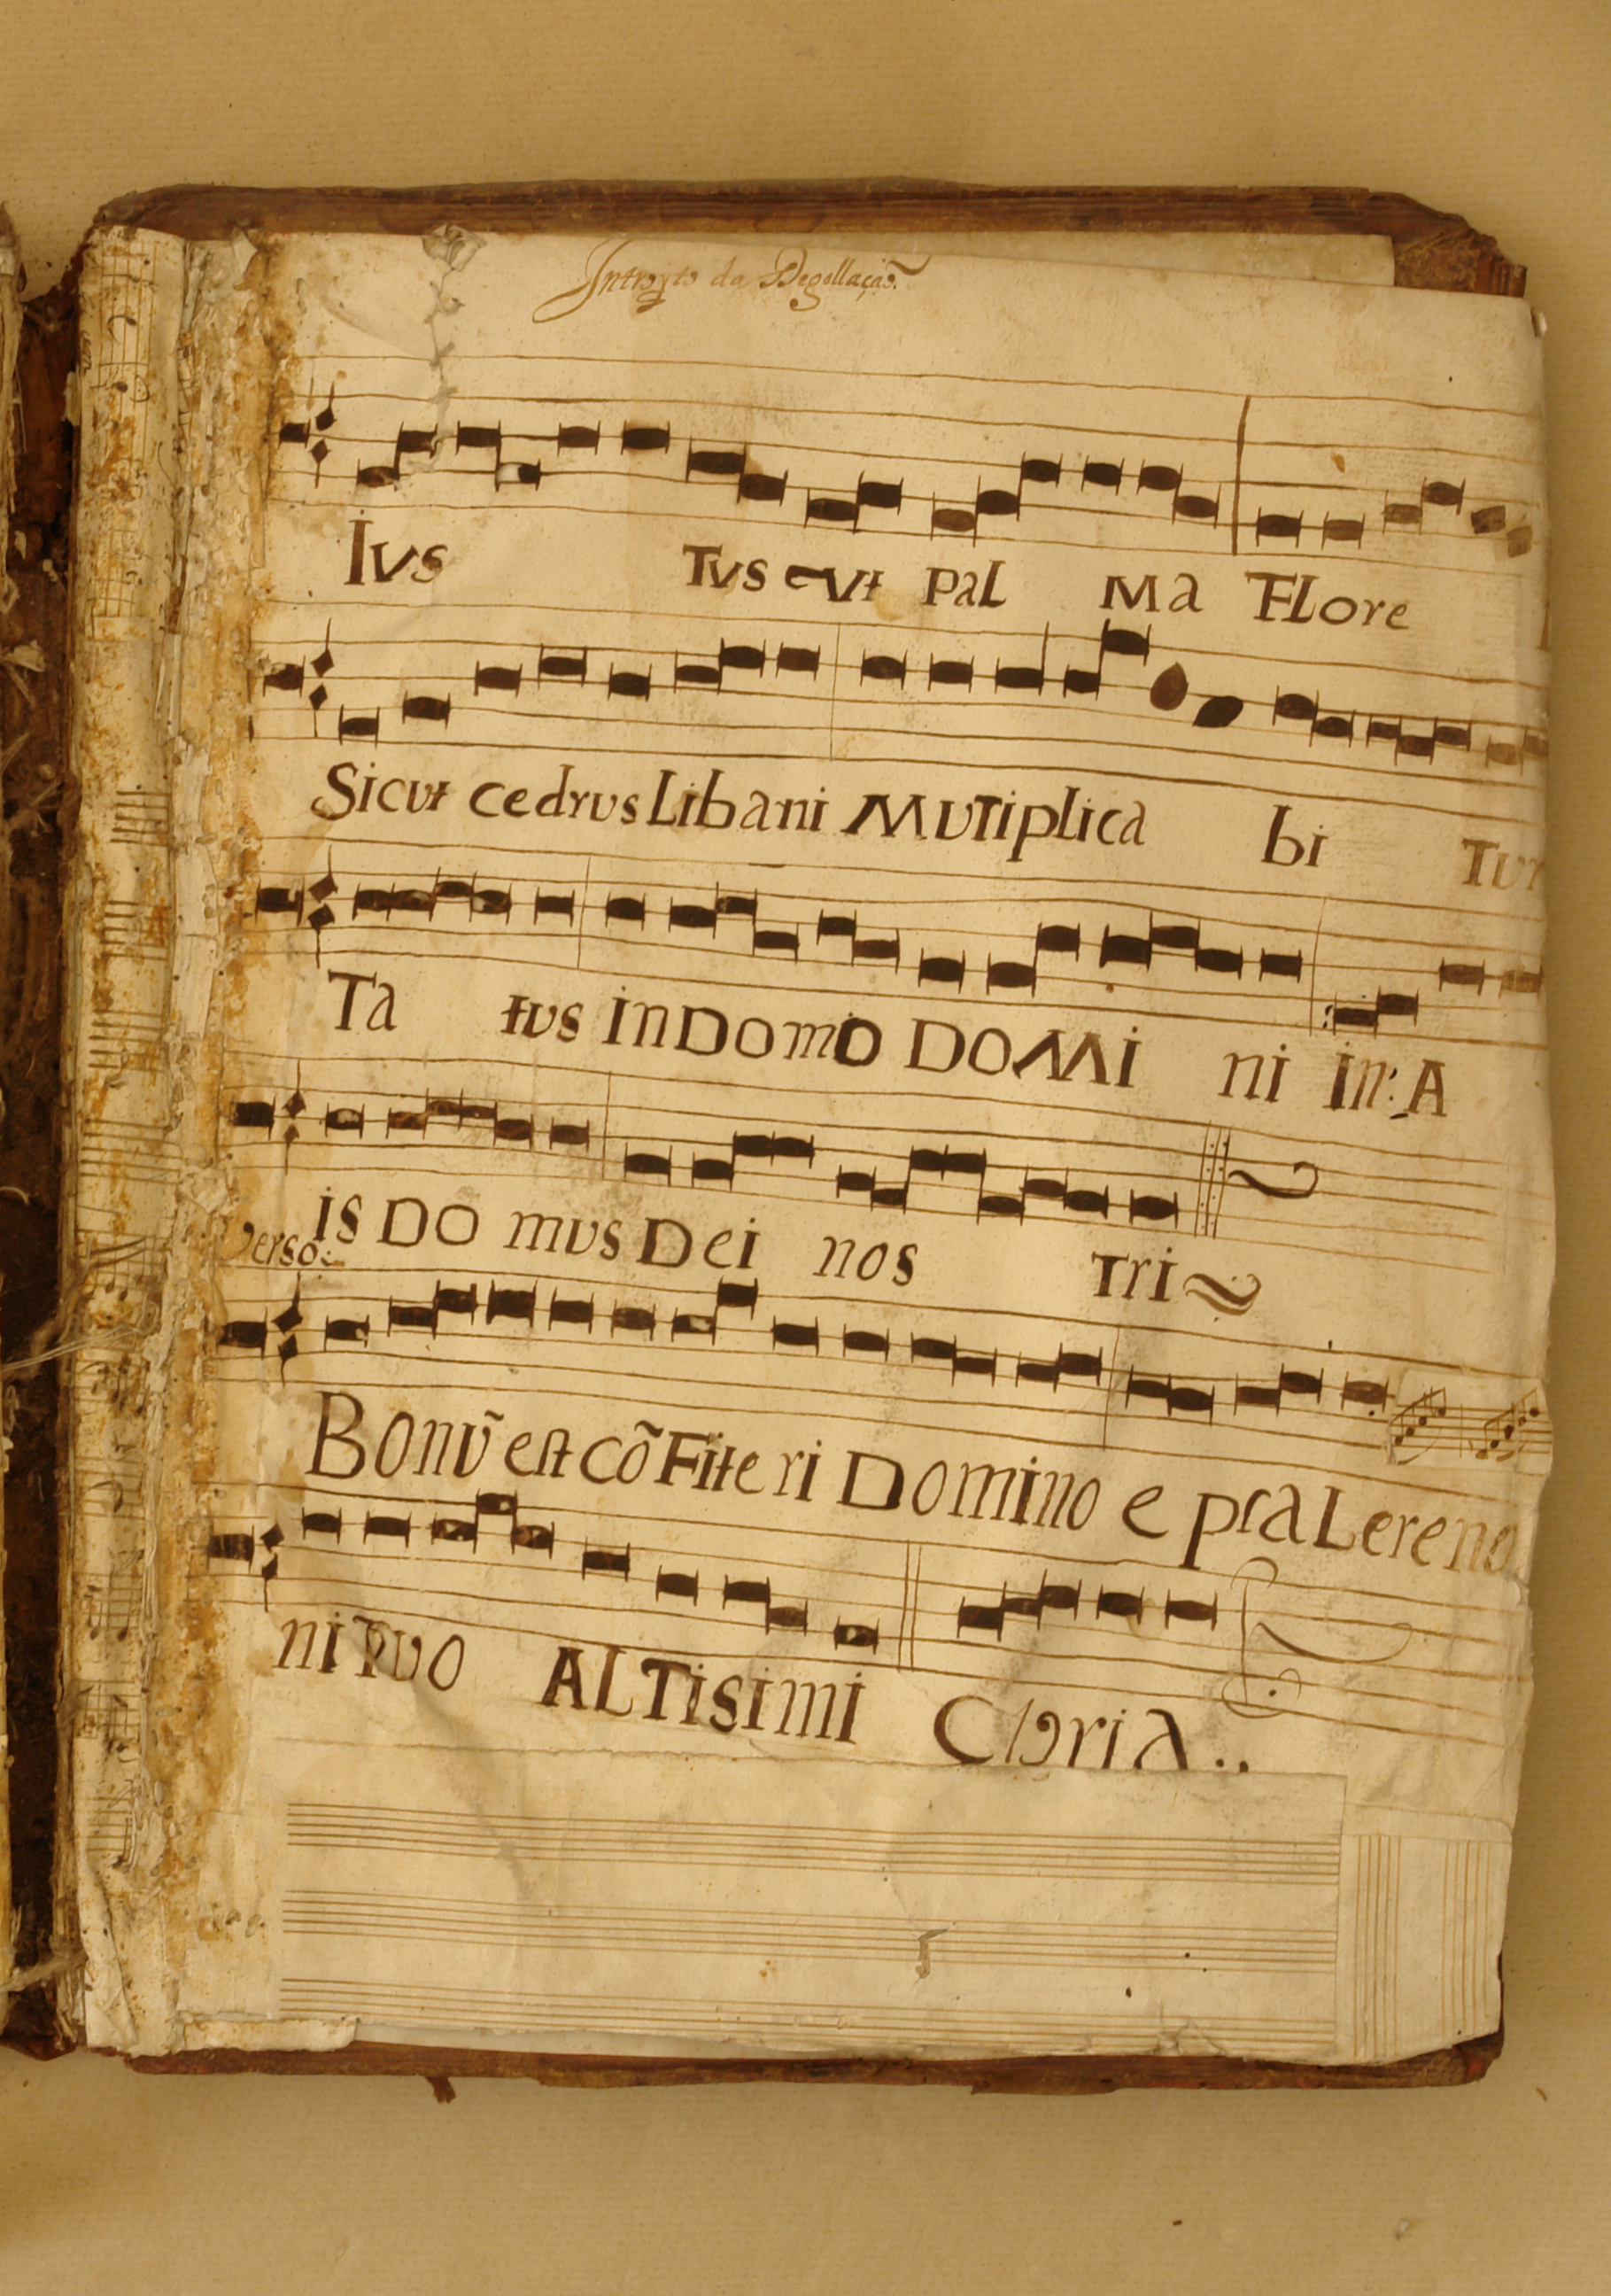 Introyto da Degollação.
Ivs Tvs vt Pal Ma Flore
Sicvt cedrvs Libani Mvtiplica bi Tvr
Ta tvs in Domo Domi ni in: A
is Do mvs Dei nos Tri
Verso:
Bonũ est cõFiteri Domino e psaLere no
ni Tvo ALTisimi Gloria..